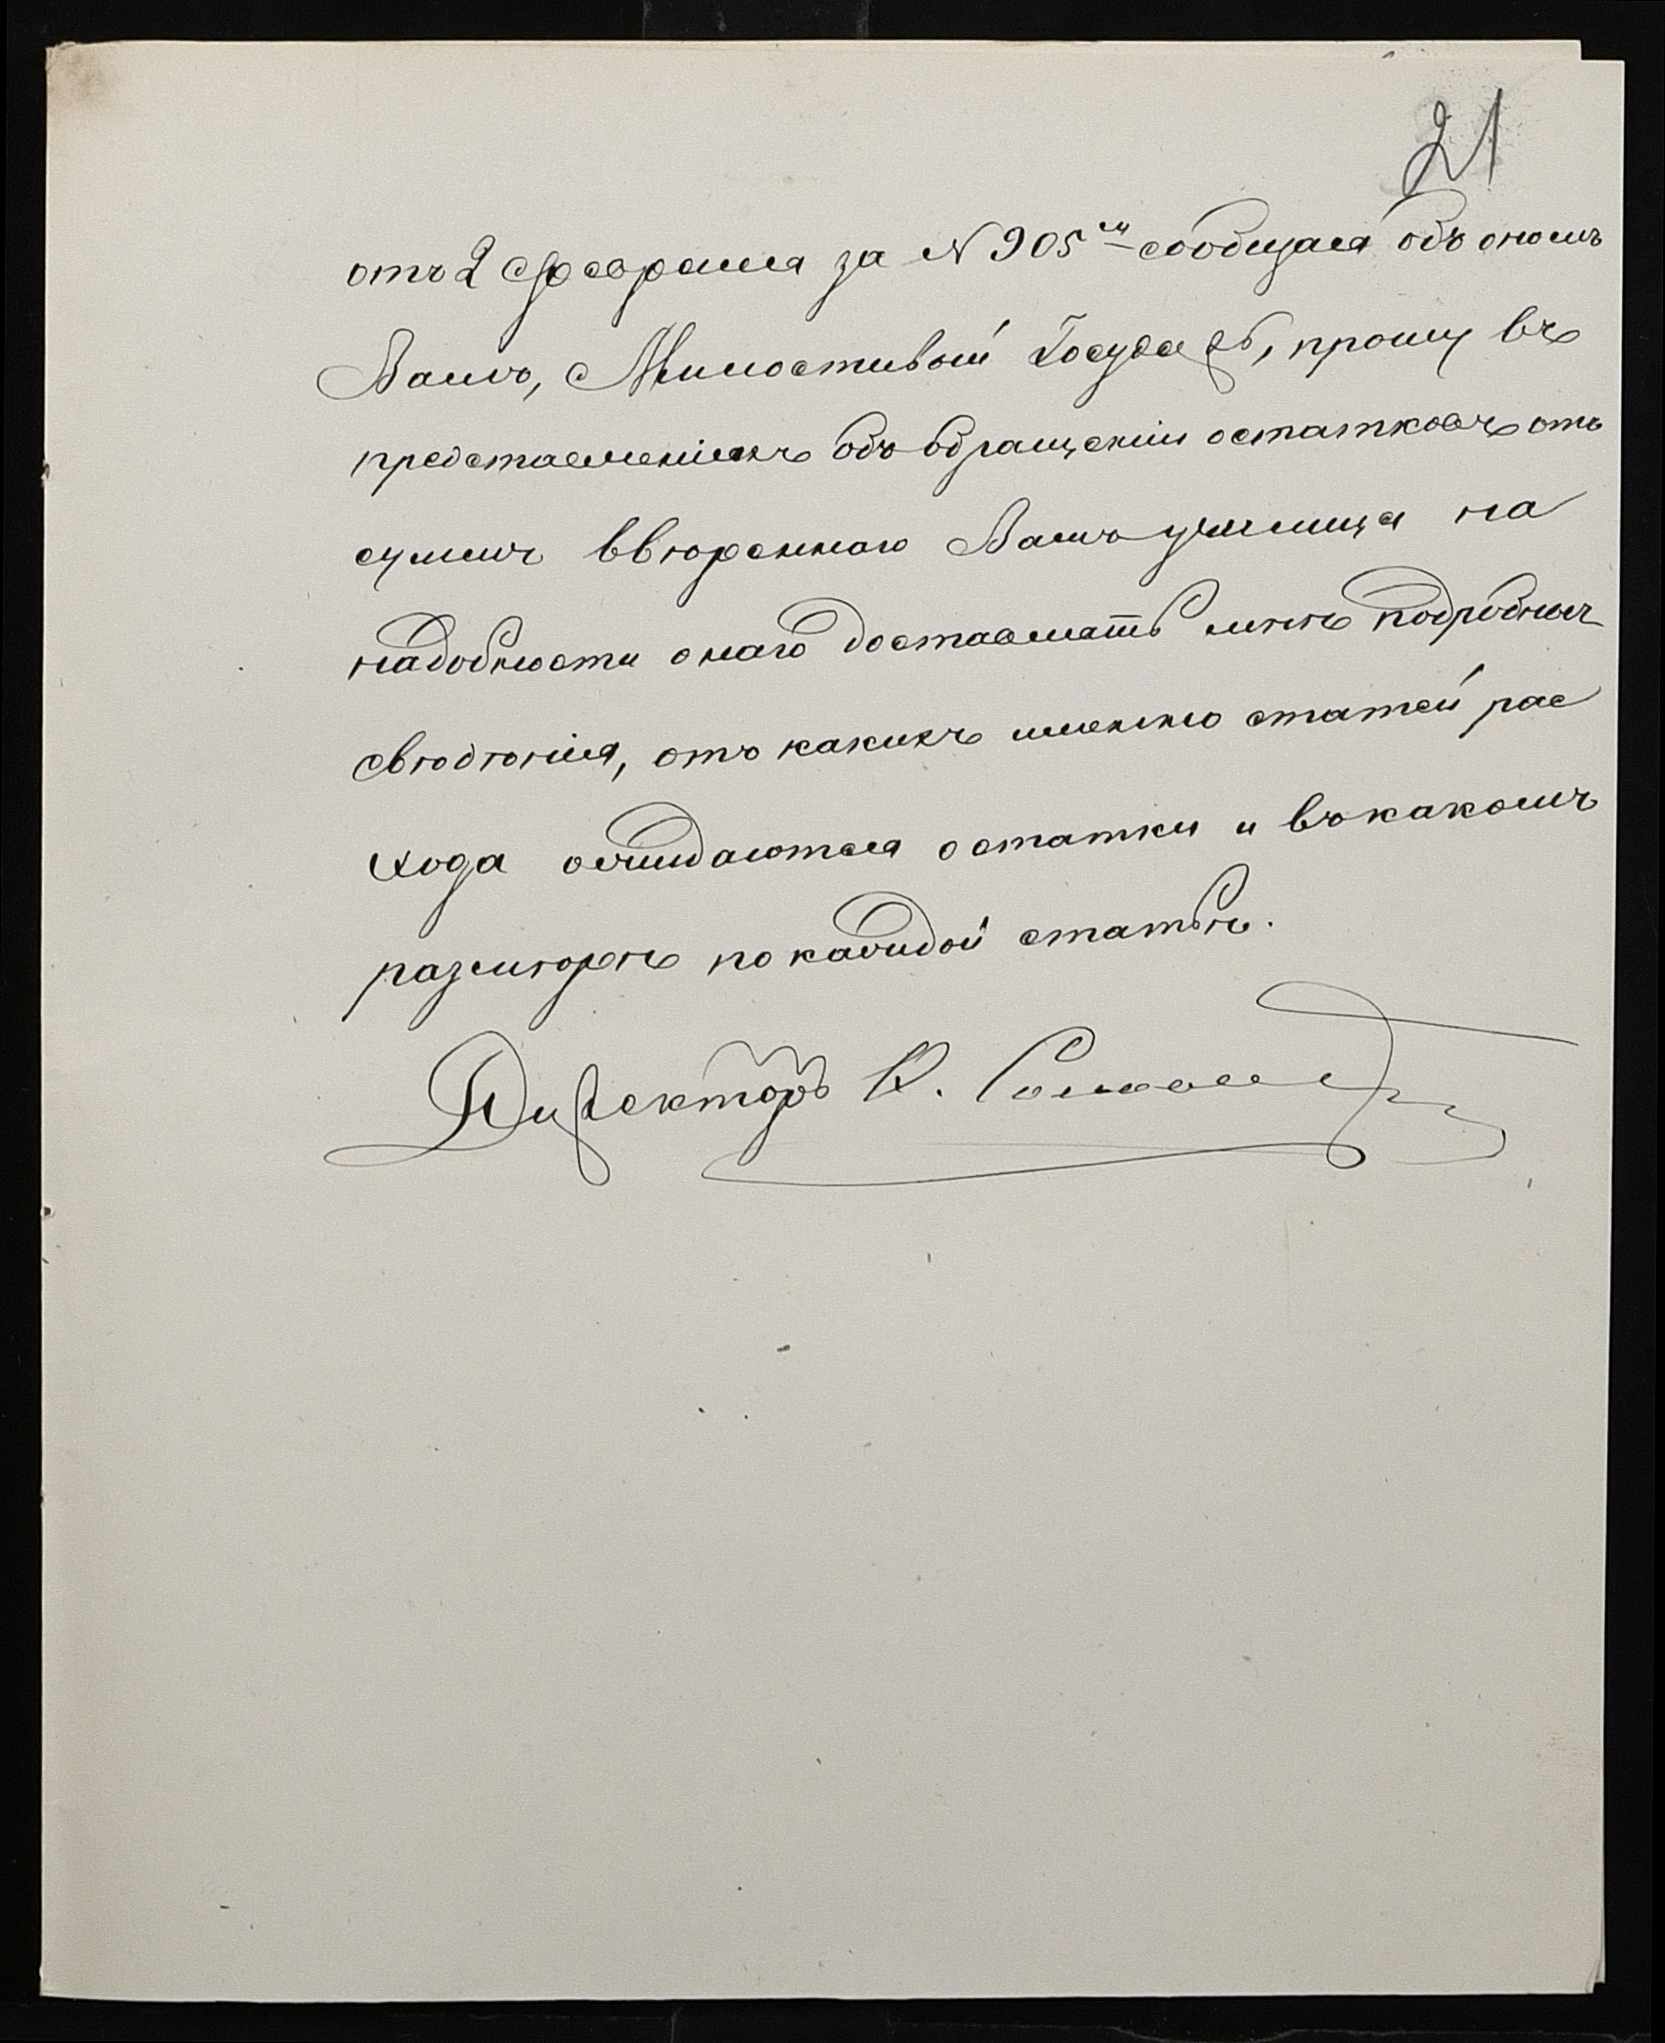 21
отъ 2 Февраля за N 905 мъ сообщая объ ономъ
Вамъ, Милостивый Государь, прошу въ
представленіяхъ объ обращеніи остатковъ отъ
суммъ ввѣреннаго Вамъ училища на
надобности онаго доставлять мнѣ подробныя
свѣдѣнія, отъ какихъ именно статей рас
хода ожидаются остатки и въ какомъ
размѣрѣ по каждой статьѣ.
Директоръ К.